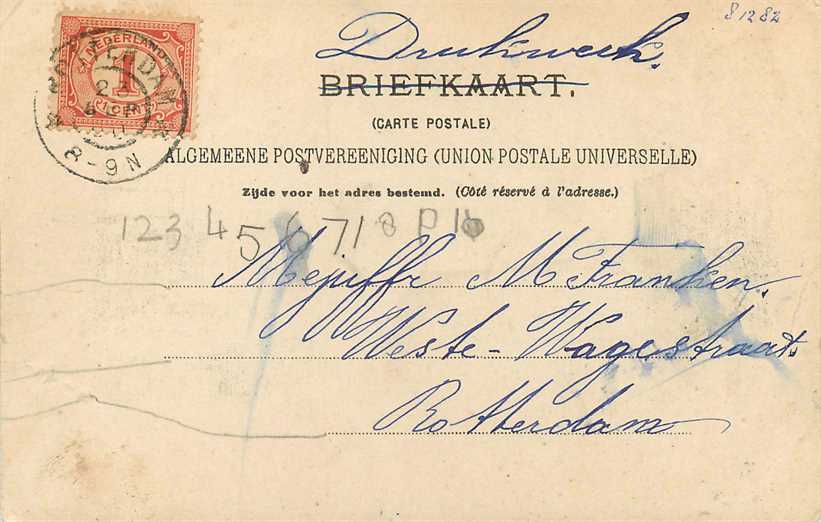 8 1282
NEDERLAND
1
ROTTERDAM
8-9N
Drukwerk.
BRIEFKAART.
(CARTE POSTALE)
ALGEMEENE POSTVEREENIGING (UNION POSTALE UNIVERSELLE)
Zijde voor het adres bestemd. (Côté réservé à l'adresse.)
1 2 3 4 5 6 7 / 8
Mejuffr M Franken.
Weste-Wagestraat.
Rotterdam